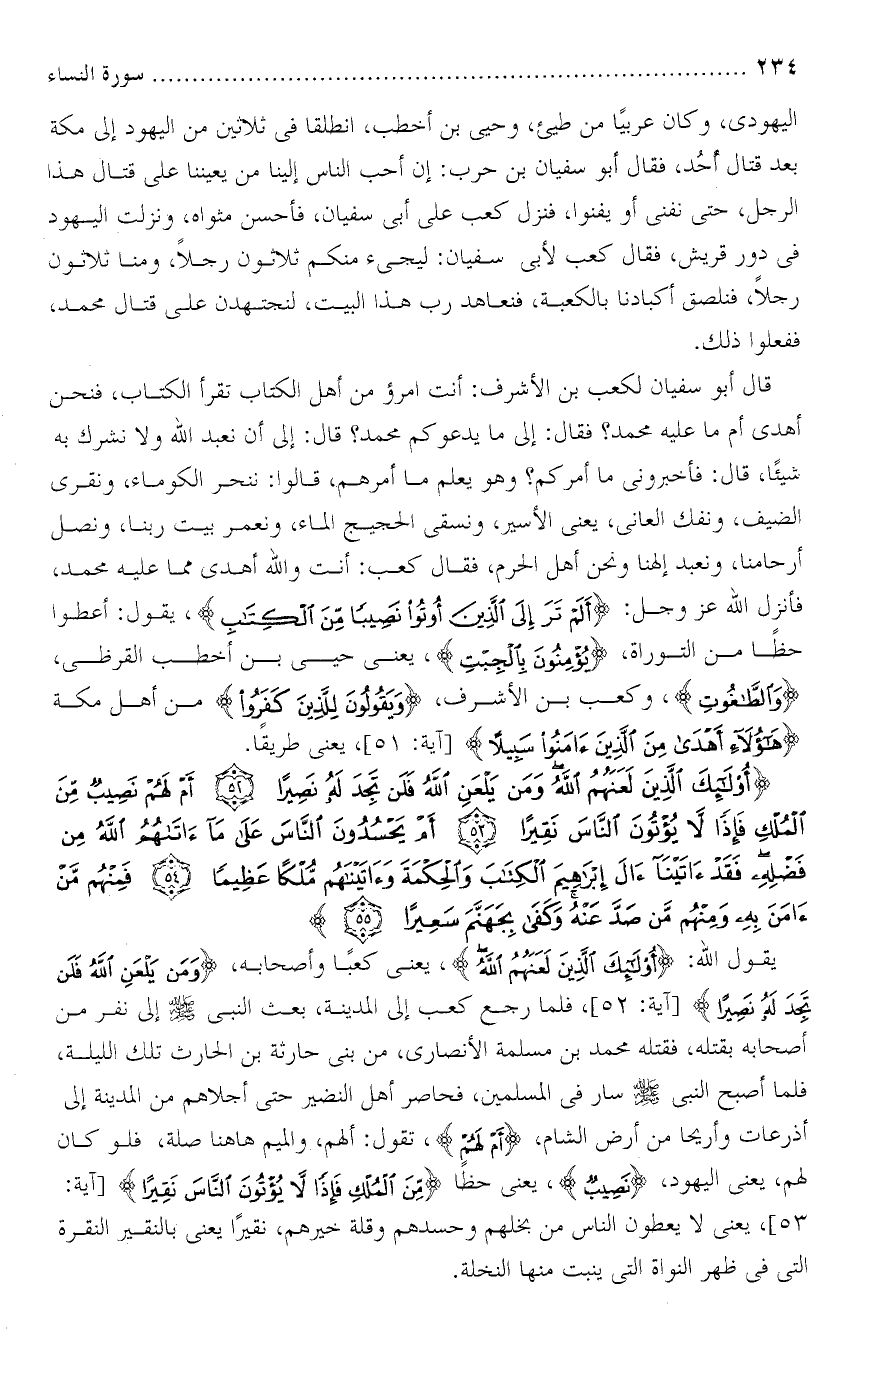 ٢٣٤ ........................................................................... سورة النساء
اليهودى، وكان عربيًا من طيئ، وحيى بن أخطب، انطلقا فى ثلاثين من اليهود إلى مكة
بعد قتال أُحُد، فقال أبو سفيان بن حرب: إن أحب الناس إلينا من يعيننا على قتال هذا
الرجل، حتى نفنى أو يفنوا، فنزل كعب على أبى سفيان، فأحسن مثواه، ونزلت اليهود
فى دور قريش، فقال كعب لأبى سفيان: ليجىء منكم ثلاثون رجلاً، ومنا ثلاثون
رجلاً، فنلصق أكبادنا بالكعبة، فنعاهد رب هذا البيت، لنجتهدن على قتال محمد،
ففعلوا ذلك.
قال أبو سفيان لكعب بن الأشرف: أنت امرؤ من أهل الكتاب تقرأ الكتاب، فنحن
أهدى أم ما عليه محمد؟ فقال: إلى ما يدعوكم محمد؟ قال: إلى أن نعبد الله ولا نشرك به
شيئًا، قال: فأخبرونى ما أمركم؟ وهو يعلم ما أمرهم، قالوا: ننحر الكوماء، ونقرى
الضيف، ونفك العانى، يعنى الأسير، ونسقى الحجيج الماء، ونعمر بيت ربنا، ونصل
أرحامنا، ونعبد إلهنا ونحن أهل الحرم، فقال كعب: أنت والله أهدى مما عليه محمد،
فأنزل الله عز وجل: ﴿أَلَمْ تَرَ إِلَى ٱلَّذِينَ أُوتُوا۟ نَصِيبًا مِّنَ ٱلْكِتَٰبِ﴾، يقول: أعطوا
حظًا من التوراة، ﴿يُؤْمِنُونَ بِٱلْجِبْتِ﴾، يعنى حيى بن أخطب القرظى،
﴿وَٱلطَّٰغُوتِ﴾، وكعب بن الأشرف، ﴿وَيَقُولُونَ لِلَّذِينَ كَفَرُوا۟﴾ من أهل مكة
﴿هَٰٓؤُلَآءِ أَهْدَىٰ مِنَ ٱلَّذِينَ ءَامَنُوا۟ سَبِيلًا﴾ [آية: ٥١]، يعنى طريقًا.
﴿أُو۟لَٰٓئِكَ ٱلَّذِينَ لَعَنَهُمُ ٱللَّهُ ۖ وَمَن يَلْعَنِ ٱللَّهُ فَلَن تَجِدَ لَهُۥ نَصِيرًا ٥٢ أَمْ لَهُمْ نَصِيبٌ مِّنَ
ٱلْمُلْكِ فَإِذًا لَّا يُؤْتُونَ ٱلنَّاسَ نَقِيرًا ٥٣ أَمْ يَحْسُدُونَ ٱلنَّاسَ عَلَىٰ مَآ ءَاتَىٰهُمُ ٱللَّهُ مِن
فَضْلِهِۦ ۖ فَقَدْ ءَاتَيْنَآ ءَالَ إِبْرَٰهِيمَ ٱلْكِتَٰبَ وَٱلْحِكْمَةَ وَءَاتَيْنَٰهُم مُّلْكًا عَظِيمًا ٥٤ فَمِنْهُم مَّنْ
ءَامَنَ بِهِۦ وَمِنْهُم مَّن صَدَّ عَنْهُ ۚ وَكَفَىٰ بِجَهَنَّمَ سَعِيرًا ٥٥﴾
يقول الله: ﴿أُو۟لَٰٓئِكَ ٱلَّذِينَ لَعَنَهُمُ ٱللَّهُ ۖ﴾، يعنى كعبًا وأصحابه، ﴿وَمَن يَلْعَنِ ٱللَّهُ فَلَن
تَجِدَ لَهُۥ نَصِيرًا﴾ [آية: ٥٢]، فلما رجع كعب إلى المدينة، بعث النبى ﷺ إلى نفر من
أصحابه بقتله، فقتله محمد بن مسلمة الأنصارى، من بنى حارثة بن الحارث تلك الليلة،
فلما أصبح النبى ﷺ سار فى المسلمين، فحاصر أهل النضير حتى أجلاهم من المدينة إلى
أذرعات وأريحا من أرض الشام، ﴿أَمْ لَهُمْ﴾، تقول: ألهم، والميم هاهنا صلة، فلو كان
لهم، يعنى اليهود، ﴿نَصِيبٌ﴾، يعنى حظًا ﴿مِّنَ ٱلْمُلْكِ فَإِذًا لَّا يُؤْتُونَ ٱلنَّاسَ نَقِيرًا﴾ [آية:
٥٣]، يعنى لا يعطون الناس من بخلهم وحسدهم وقلة خيرهم، نقيرًا يعنى بالنقير النقرة
التى فى ظهر النواة التى ينبت منها النخلة.